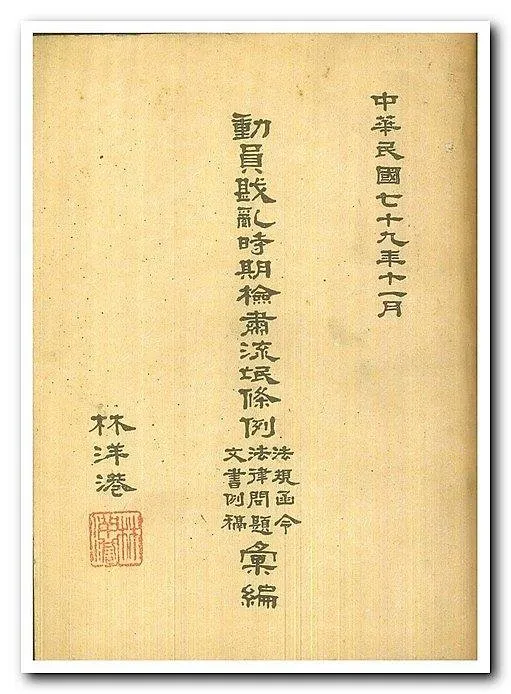 中華民國七十九年十一月
動員戡亂時期檢肅流氓條例
法規函令
法律問題
文書例稿
彙編
林洋港